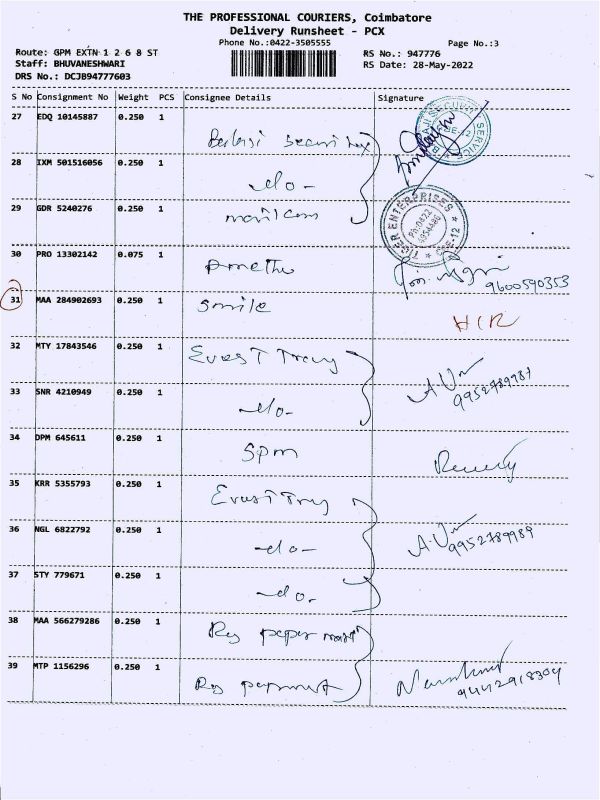 THE PROFESSIONAL COURIERS, Coimbatore
Delivery Runsheet - PCX
Phone No.:0422-3505555
Page No.:3
Route: GPM EXTN 1 2 6 8 ST
RS No.: 947776
Staff: BHUVANESHWARI
RS Date: 28-May-2022
DRS No.: DCJB94777603
S No Consignment No Weight PCS Consignee Details Signature
27 EDQ 10145887 0.250 1
28 IXM 501516056 0.250 1 -do-
29 GDR 5240276 0.250 1
TIGER ENTERPRISES
30 PRO 13302142 0.075 1
9600590353
31 MAA 284902693 0.250 1 Smile
32 MTY 17843546 0.250 1
9952789987
33 SNR 4210949 0.250 1 -do-
34 DPM 645611 0.250 1 Spm
35 KRR 5355793 0.250 1
36 NGL 6822792 0.250 1 -do-
9952789989
37 STY 779671 0.250 1 -do-
38 MAA 566279286 0.250 1 paper mart
39 MTP 1156296 0.250 1
9442918304